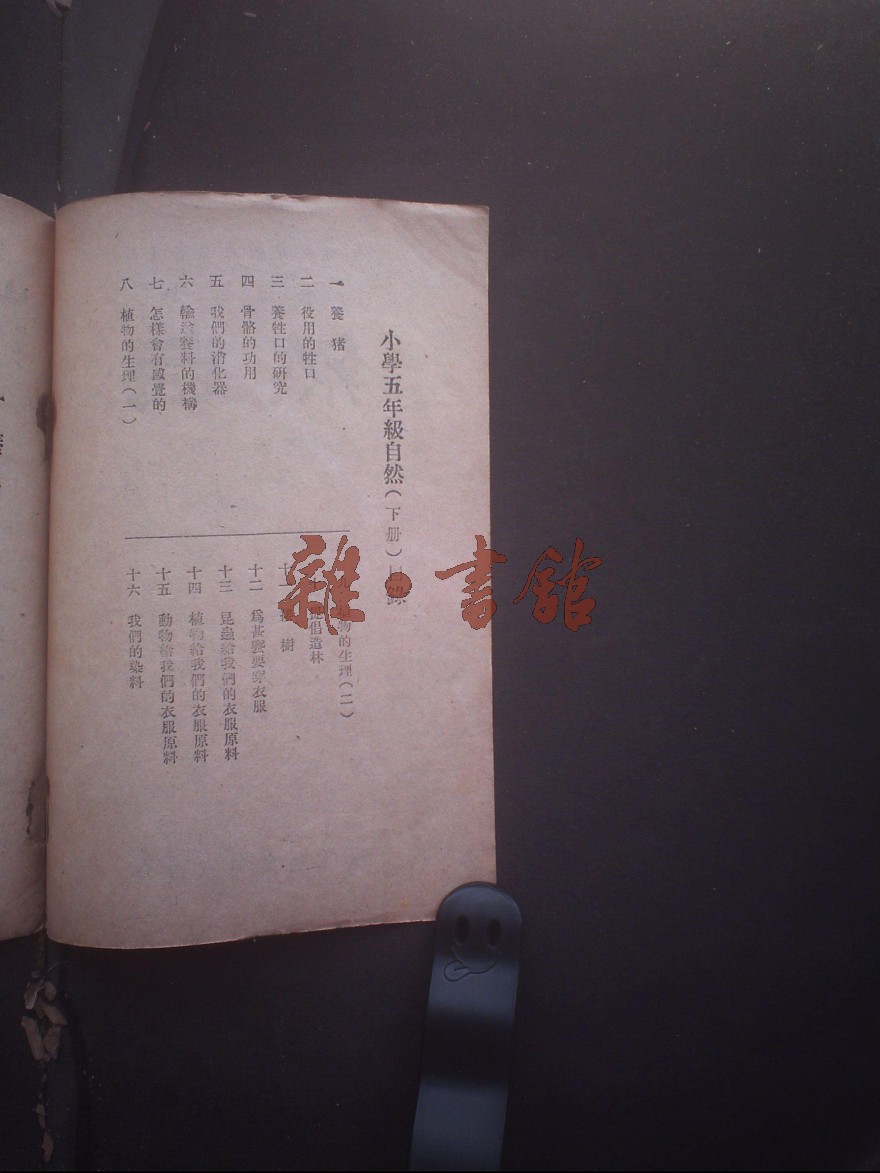 小學五年級自然(下册)目錄
一 養猪
二 役用的牲口
三 養牲口的研究
四 骨骼的功用
五 我們的消化器
六 輸送養料的機構
七 怎樣會有感覺的
八 植物的生理(一)
物的生理(二)
提倡造林
十一 樹
十二 爲甚麽要穿衣服
十三 昆蟲給我們的衣服原料
十四 植物給我們的衣服原料
十五 動物給我們的衣服原料
十六 我們的染料
雜·書館